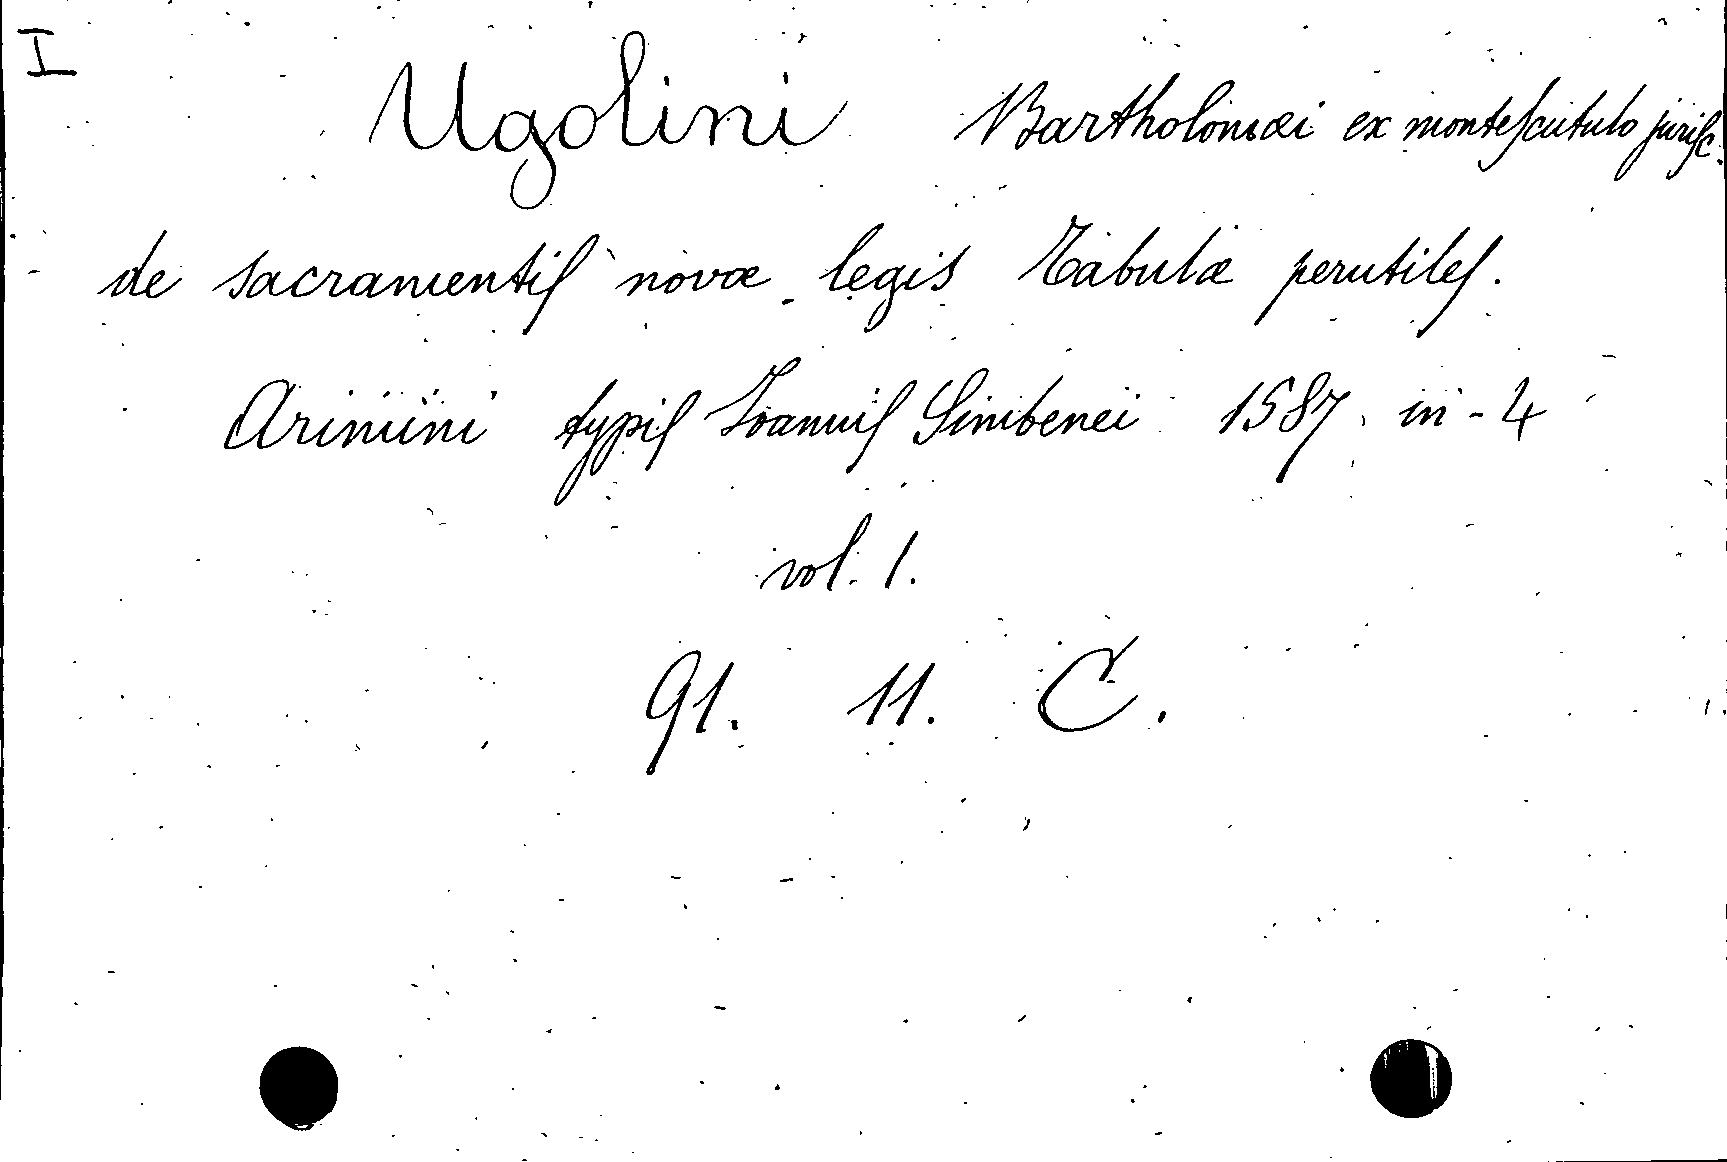 I
Ugolini Bartholomæi ex monteſcutulo juriſc.
de sacramentiſ novæ legis Tabulæ perutileſ.
Arimini typiſ Joanniſ Simbenei 1587. in-4
vol. 1.
91. 11. C.